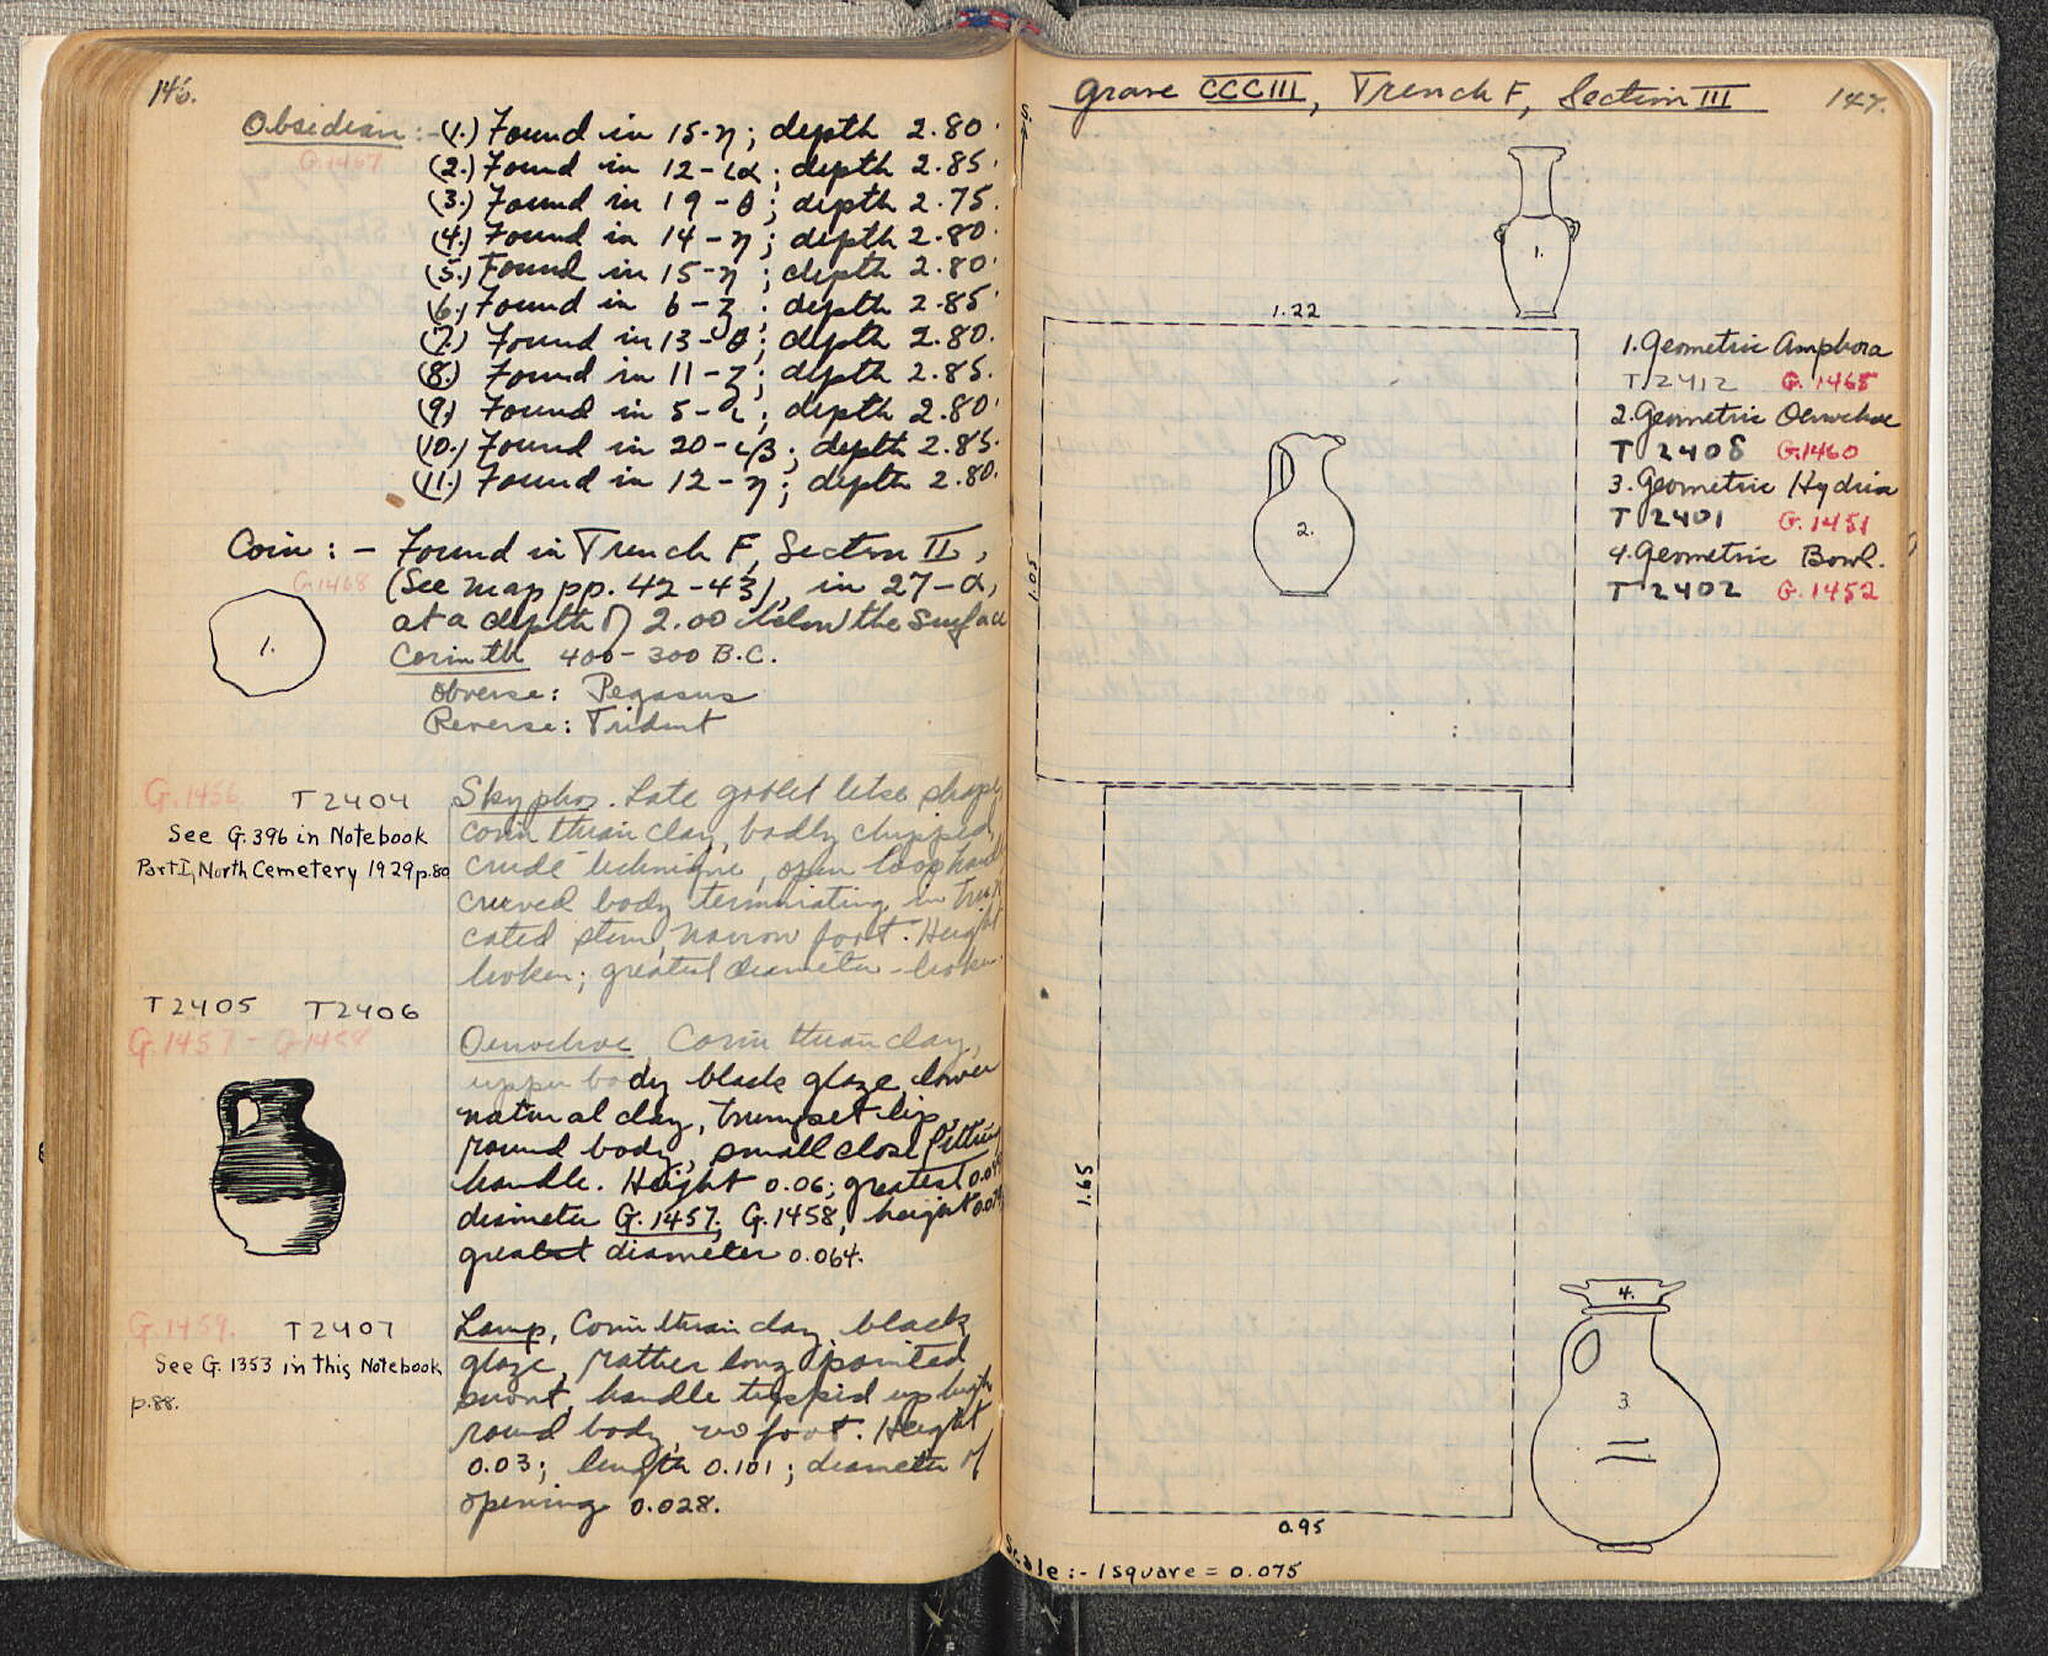 146.
Obsidian :- (1.) Found in 15-η; depth 2.80.
G.1467
(2.) Found in 12-ια; depth 2.85.
(3.) Found in 19-θ; depth 2.75.
(4.) Found in 14-η; depth 2.80.
(5.) Found in 15-η; depth 2.80.
(6.) Found in 6-ζ; depth 2.85.
(7.) Found in 13-θ; depth 2.80.
(8.) Found in 11-ζ; depth 2.85.
(9.) Found in 5-ι; depth 2.80.
(10.) Found in 20-ιβ; depth 2.85.
(11.) Found in 12-η; depth 2.80.
Coin :- Found in Trench F, Section II,
G.1468
(See map pp. 42-43), in 27-α,
at a depth of 2.00 below the surface
Corinth 400-300 B.C.
Obverse: Pegasus
Reverse: Trident
1.
G.1456 T2404
See G.396 in Notebook
Part I, North Cemetery 1929 p.80
Skyphos. Late goblet like shape,
Corinthian clay, badly chipped,
crude technique, open loop hand
curved body terminating in trun
cated stem, narrow foot. Height
broken; greatest diameter - broken.
T2405 T2406
G.1457 - G.1458
Oenochoe, Corinthian clay,
upper body black glaze lower
natural clay, trumpet lip,
round body, small close fitting
handle. Height 0.06; greatest
diameter G.1457; G.1458, height
greatest diameter 0.064.
G.1459. T2407
See G.1353 in this Notebook
p.88.
Lamp, Corinthian clay, black
glaze, rather long pointed
snout, handle tipped up high
round body, no foot. Height
0.03; length 0.101; diameter of
opening 0.028.
Grave CCCIII, Trench F, Section III
147.
1.
1.22
1.05
2.
1. Geometric Amphora
T.2412 G.1465
2. Geometric Oenochoe
T 2408 G.1460
3. Geometric Hydria
T 2401 G.1451
4. Geometric Bowl.
T 2402 G.1452
1.65
4.
3
0.95
Scale :- 1 square = 0.075